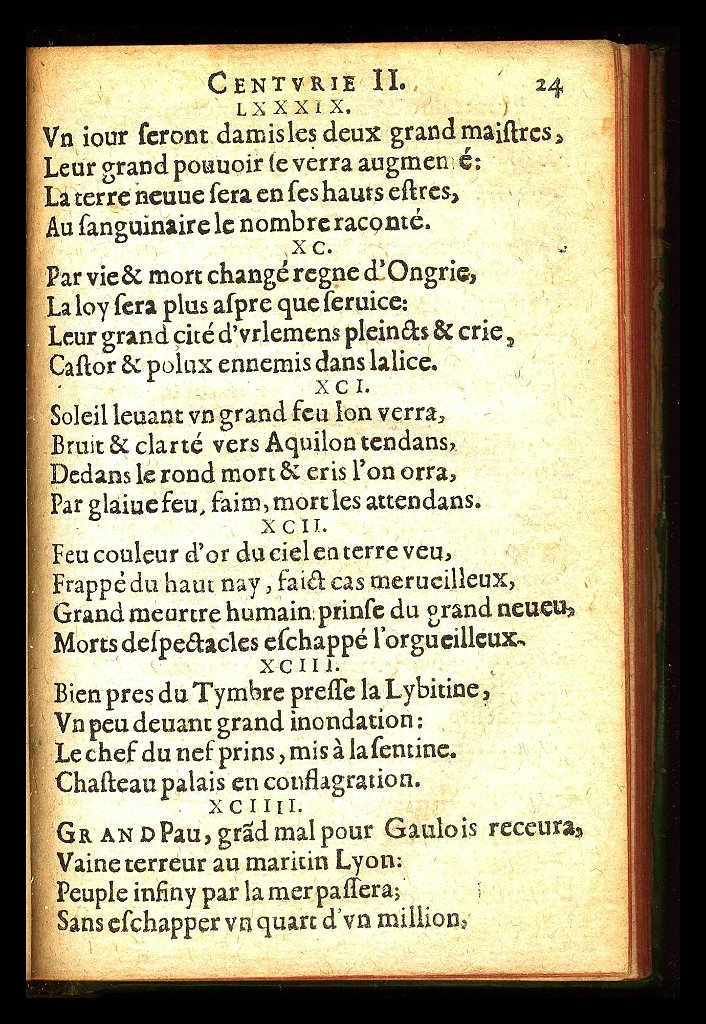 CENTVRIE II. 24
LXXXIX.
Vn iour ſeront damis les deux grand maiſtres,
Leur grand pouuoir ſe verra augmen é:
La terre neuue ſera en ſes hauts eſtres,
Au ſanguinaire le nombre raconté.
XC.
Par vie & mort changé regne d'Ongrie,
La loy ſera plus aſpre que ſeruice:
Leur grand cité d'vrlemens pleincts & crie,
Caſtor & polux ennemis dans la lice.
XCI.
Soleil leuant vn grand feu lon verra,
Bruit & clarté vers Aquilon tendans,
Dedans le rond mort & cris l'on orra,
Par glaiue feu, faim, mort les attendans.
XCII.
Feu couleur d'or du ciel en terre veu,
Frappé du haut nay, faict cas merueilleux,
Grand meurtre humain prinſe du grand neueu,
Morts deſpectacles eſchappé l'orgueilleux.
XCIII.
Bien pres du Tymbre preſſe la Lybitine,
Vn peu deuant grand inondation:
Le chef du nef prins, mis à la ſentine.
Chaſteau palais en conflagration.
XCIIII.
GRAND Pau, grãd mal pour Gaulois receura,
Vaine terreur au maritin Lyon:
Peuple infiny par la mer paſſera;
Sans eſchapper vn quart d'vn million,